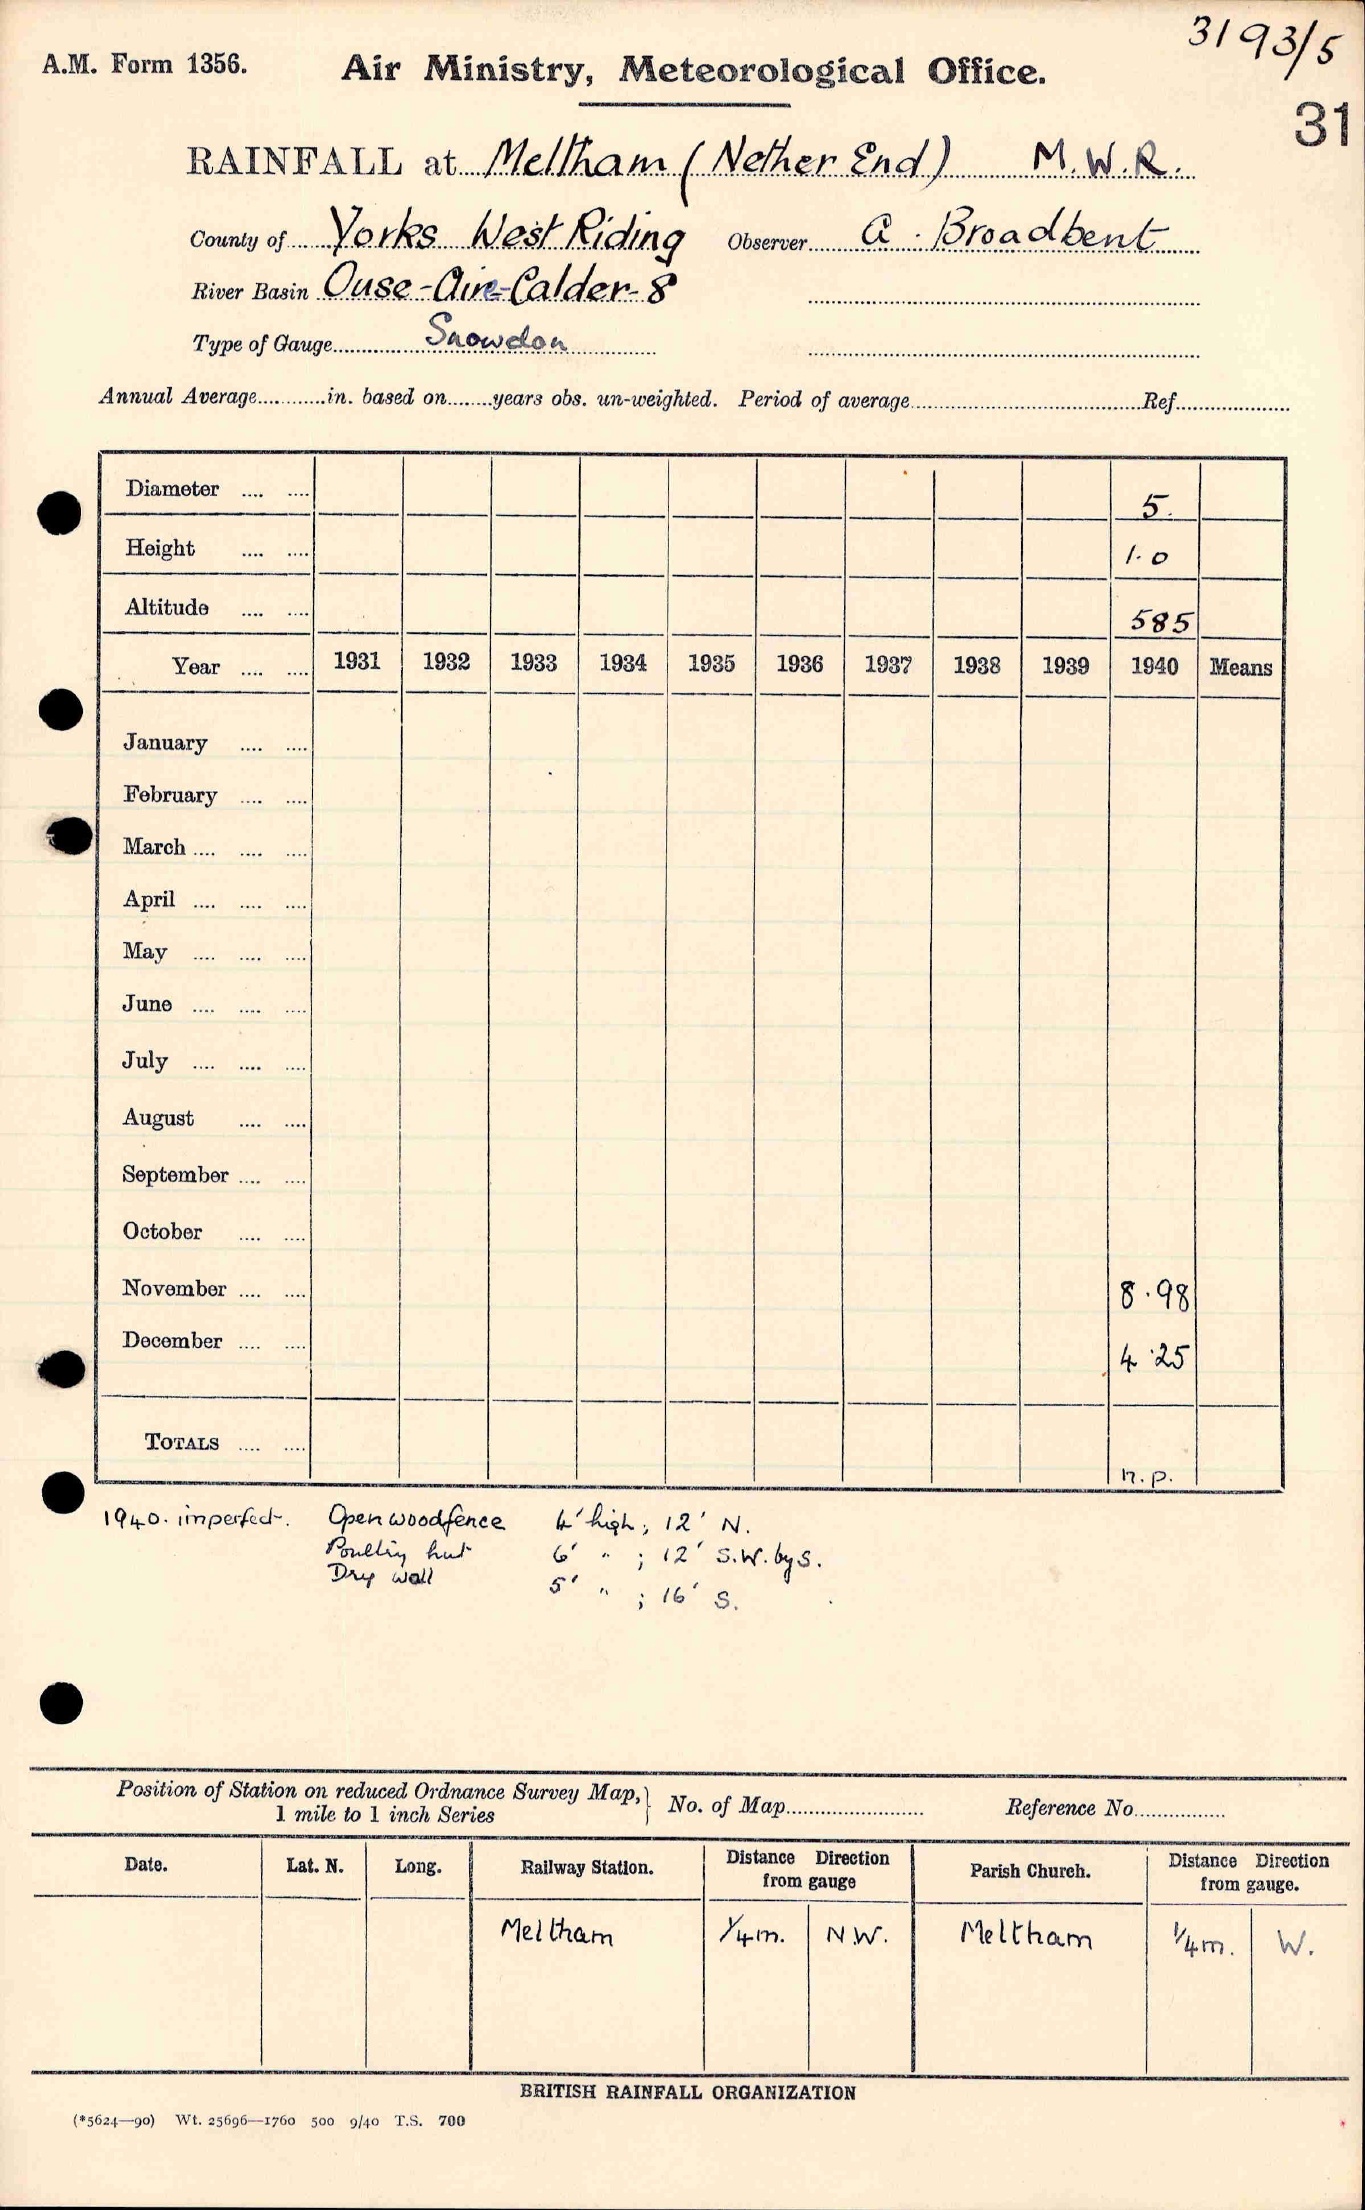 3193/5
A.M. Form 1356. Air Ministry, Meteorological Office.
31
RAINFALL at Meltham (Nether End) M.W.R.
County of Yorks West Riding Observer A. Broadbent
River Basin Ouse-Aire-Calder-8
Type of Gauge Snowdon
Annual Average............in. based on........years obs. un-weighted. Period of average.................Ref..................
Diameter .... .... 5.
Height .... .... 1.0
Altitude .... .... 585
Year .... .... 1931 1932 1933 1934 1935 1936 1937 1938 1939 1940 Means
January .... ....
February .... ....
March .... .... ....
April .... .... ....
May .... .... ....
June .... .... ....
July .... .... ....
August .... ....
September .... ....
October .... ....
November .... .... 8.98
December .... .... 4.25
TOTALS .... .... n.p.
1940. imperfect. Open woodfence 4' high; 12' N.
Poultry hut 6' " ; 12' S.W. by S.
Dry wall 5' " ; 16' S.
Position of Station on reduced Ordnance Survey Map,} No. of Map........................ Reference No................
1 mile to 1 inch Series
Date. Lat. N. Long. Railway Station. Distance Direction from gauge Parish Church. Distance Direction from gauge.
Meltham 1/4 m. N.W. Meltham 1/4 m. W.
BRITISH RAINFALL ORGANIZATION
(*5624—90) Wt. 25696—1760 500 9/40 T.S. 700